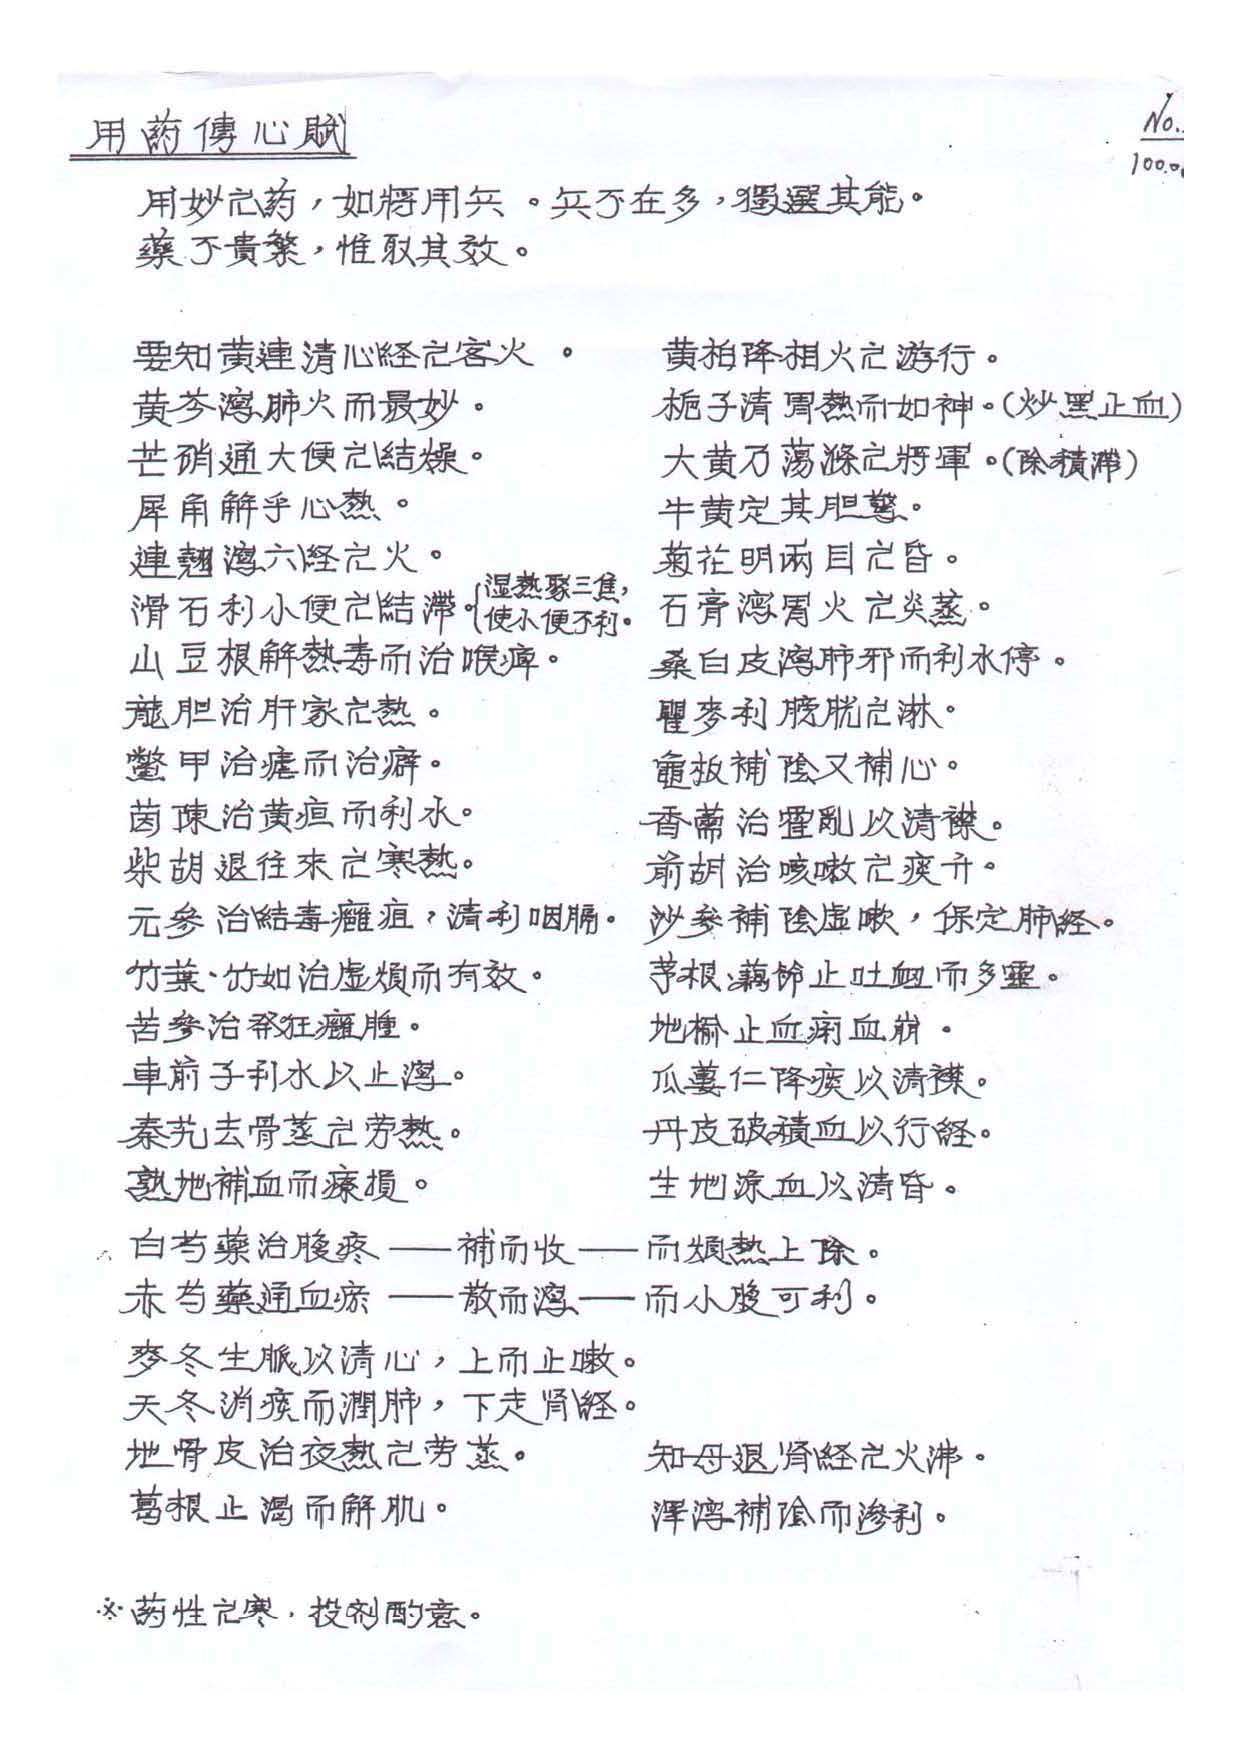 用药傳心賦
No.
100.0
用妙之药，如將用兵。兵不在多，獨選其能。
藥不貴繁，惟取其效。
要知黄連清心経之客火。 黄柏降相火之游行。
黄芩瀉肺火而最妙。 栀子清胃熱而如神。(炒黑止血)
芒硝通大便之結燥。 大黄乃蕩滌之將軍。(除積滯)
犀角解乎心熱。 牛黄定其胆驚。
連翹瀉六経之火。 菊花明兩目之昏。
滑石利小便之結滯。{湿熱聚三焦，使小便不利。 石膏瀉胃火之炎蒸。
山豆根解熱毒而治喉痺。 桑白皮瀉肺邪而利水停。
龍胆治肝家之熱。 瞿麥利膀胱之淋。
鱉甲治瘧而治癖。 龜板補陰又補心。
茵陳治黄疸而利水。 香薷治霍亂以清襟。
柴胡退往來之寒熱。 前胡治咳嗽之痰升。
元參治結毒癰疽，清利咽膈。 沙參補陰虚嗽，保定肺経。
竹葉、竹如治虚煩而有效。 茅根、藕節止吐血而多靈。
苦參治発狂癰腫。 地榆止血痢血崩。
車前子利水以止瀉。 瓜蔞仁降痰以清襟。
秦艽去骨蒸之劳熱。 丹皮破積血以行経。
熟地補血而療損。 生地涼血以清昏。
白芍藥治腹疼——補而收——而煩熱上除。
赤芍藥通血瘀——散而瀉——而小腹可利。
麥冬生脈以清心，上而止嗽。
天冬消痰而潤肺，下走肾経。
地骨皮治夜熱之劳蒸。 知母退肾経之火沸。
葛根止渴而解肌。 澤瀉補陰而滲利。
※药性之寒，投剂酌意。